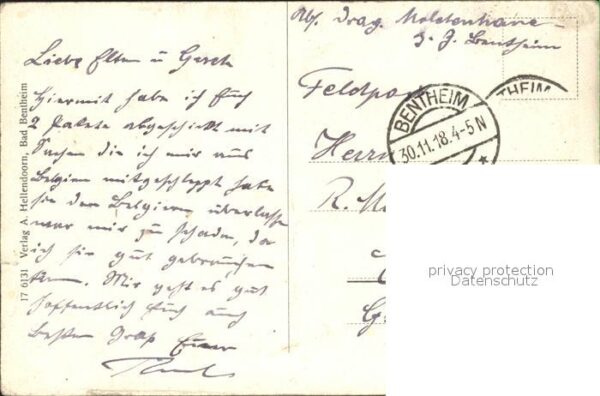 Abs. Drag. Moletenhane
z. Z. Bentheim
Feldpost
BENTHEIM
30.11.18.4-5N
THEIM
Herrn
R. M
Liebe Eltern u Grete
Hiermit habe ich Euch
2 Pakete abgeschickt mit
Sachen die ich mir aus
Belgien mitgeschleppt habe
sie den Belgiern überlassen
war mir zu schade, da
ich sie gut gebrauchen
kann. Mir geht es gut
hoffentlich Euch auch
Besten Gruß Euer
17 6131 Verlag A. Hellendoorn, Bad Bentheim
privacy protection
Datenschutz